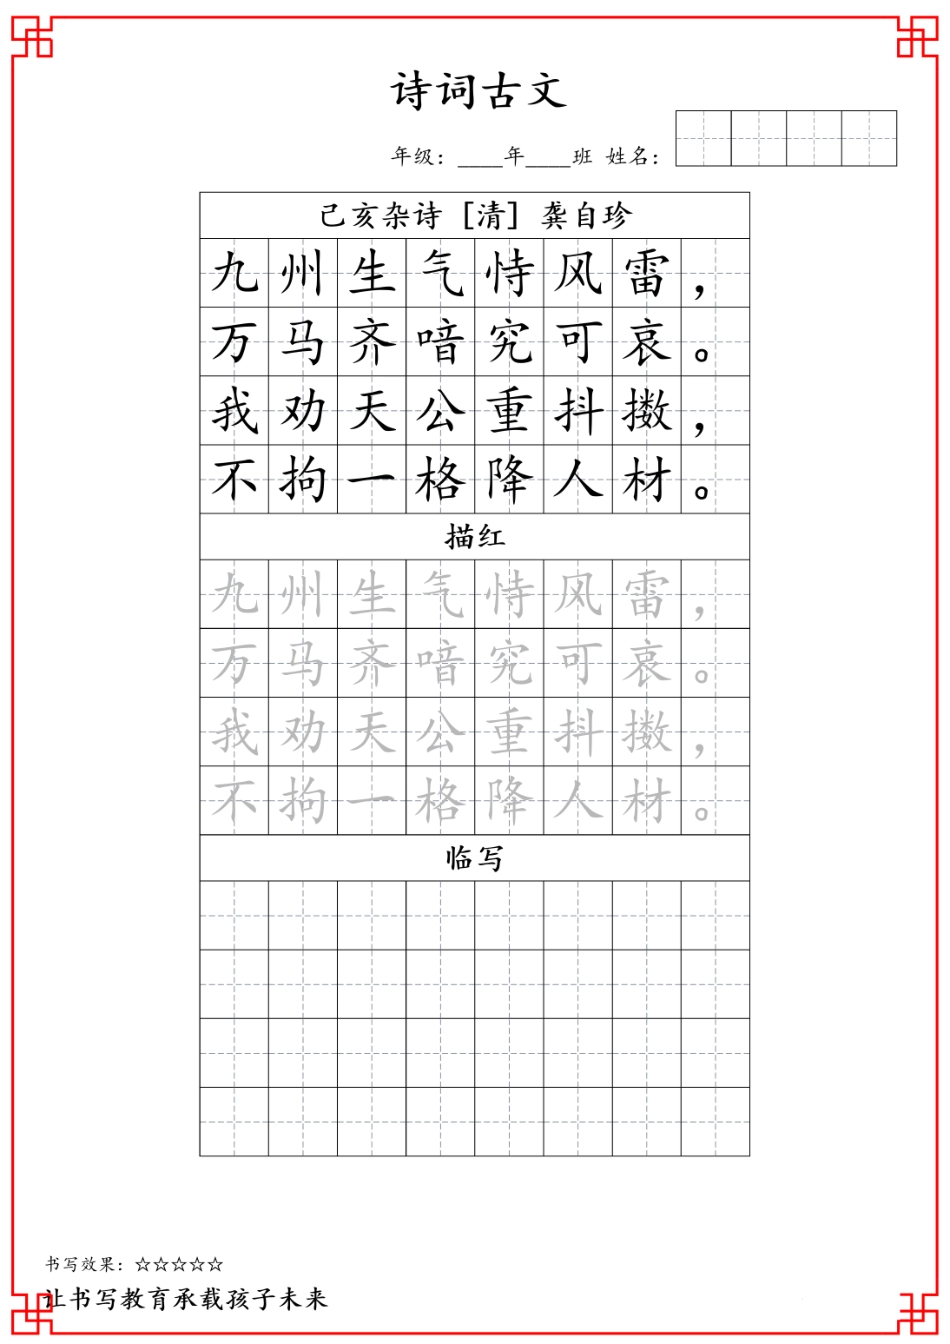 诗词古文
年级：____年____班 姓名：
己亥杂诗［清］龚自珍
九州生气恃风雷，
万马齐喑究可哀。
我劝天公重抖擞，
不拘一格降人材。
描红
九州生气恃风雷，
万马齐喑究可哀。
我劝天公重抖擞，
不拘一格降人材。
临写
书写效果：☆☆☆☆☆
让书写教育承载孩子未来